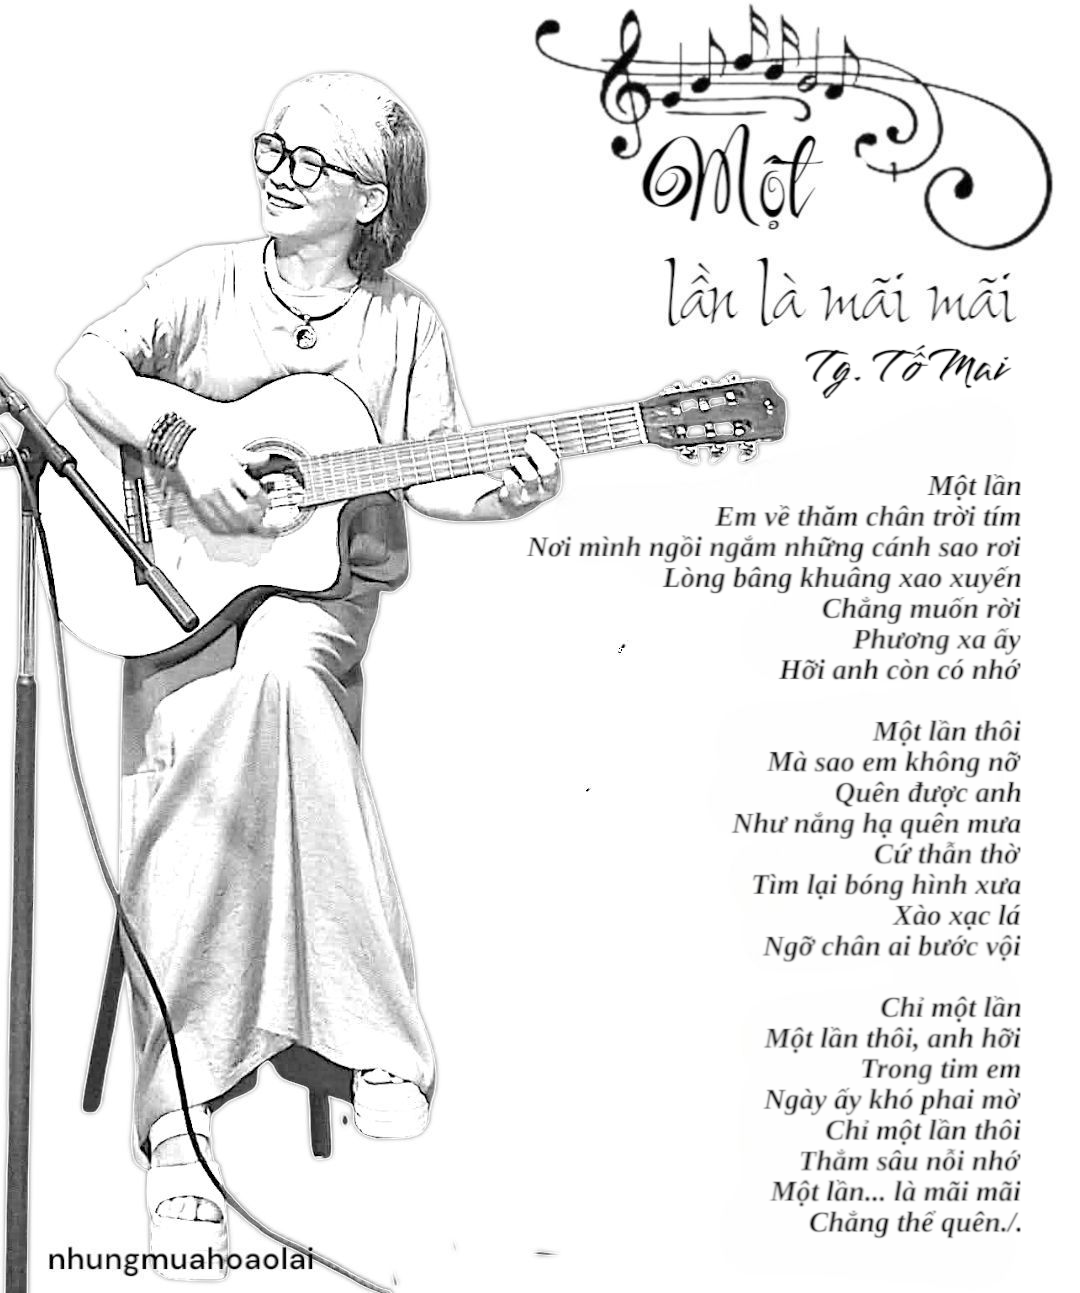 Một
lần là mãi mãi
Tg. Tố Mai
Một lần
Em về thăm chân trời tím
Nơi mình ngồi ngắm những cánh sao rơi
Lòng bâng khuâng xao xuyến
Chẳng muốn rời
Phương xa ấy
Hỡi anh còn có nhớ
Một lần thôi
Mà sao em không nỡ
Quên được anh
Như nắng hạ quên mưa
Cứ thẫn thờ
Tìm lại bóng hình xưa
Xào xạc lá
Ngỡ chân ai bước vội
Chỉ một lần
Một lần thôi, anh hỡi
Trong tim em
Ngày ấy khó phai mờ
Chỉ một lần thôi
Thắm sâu nỗi nhớ
Một lần... là mãi mãi
Chẳng thể quên./.
nhungmuahoaolai